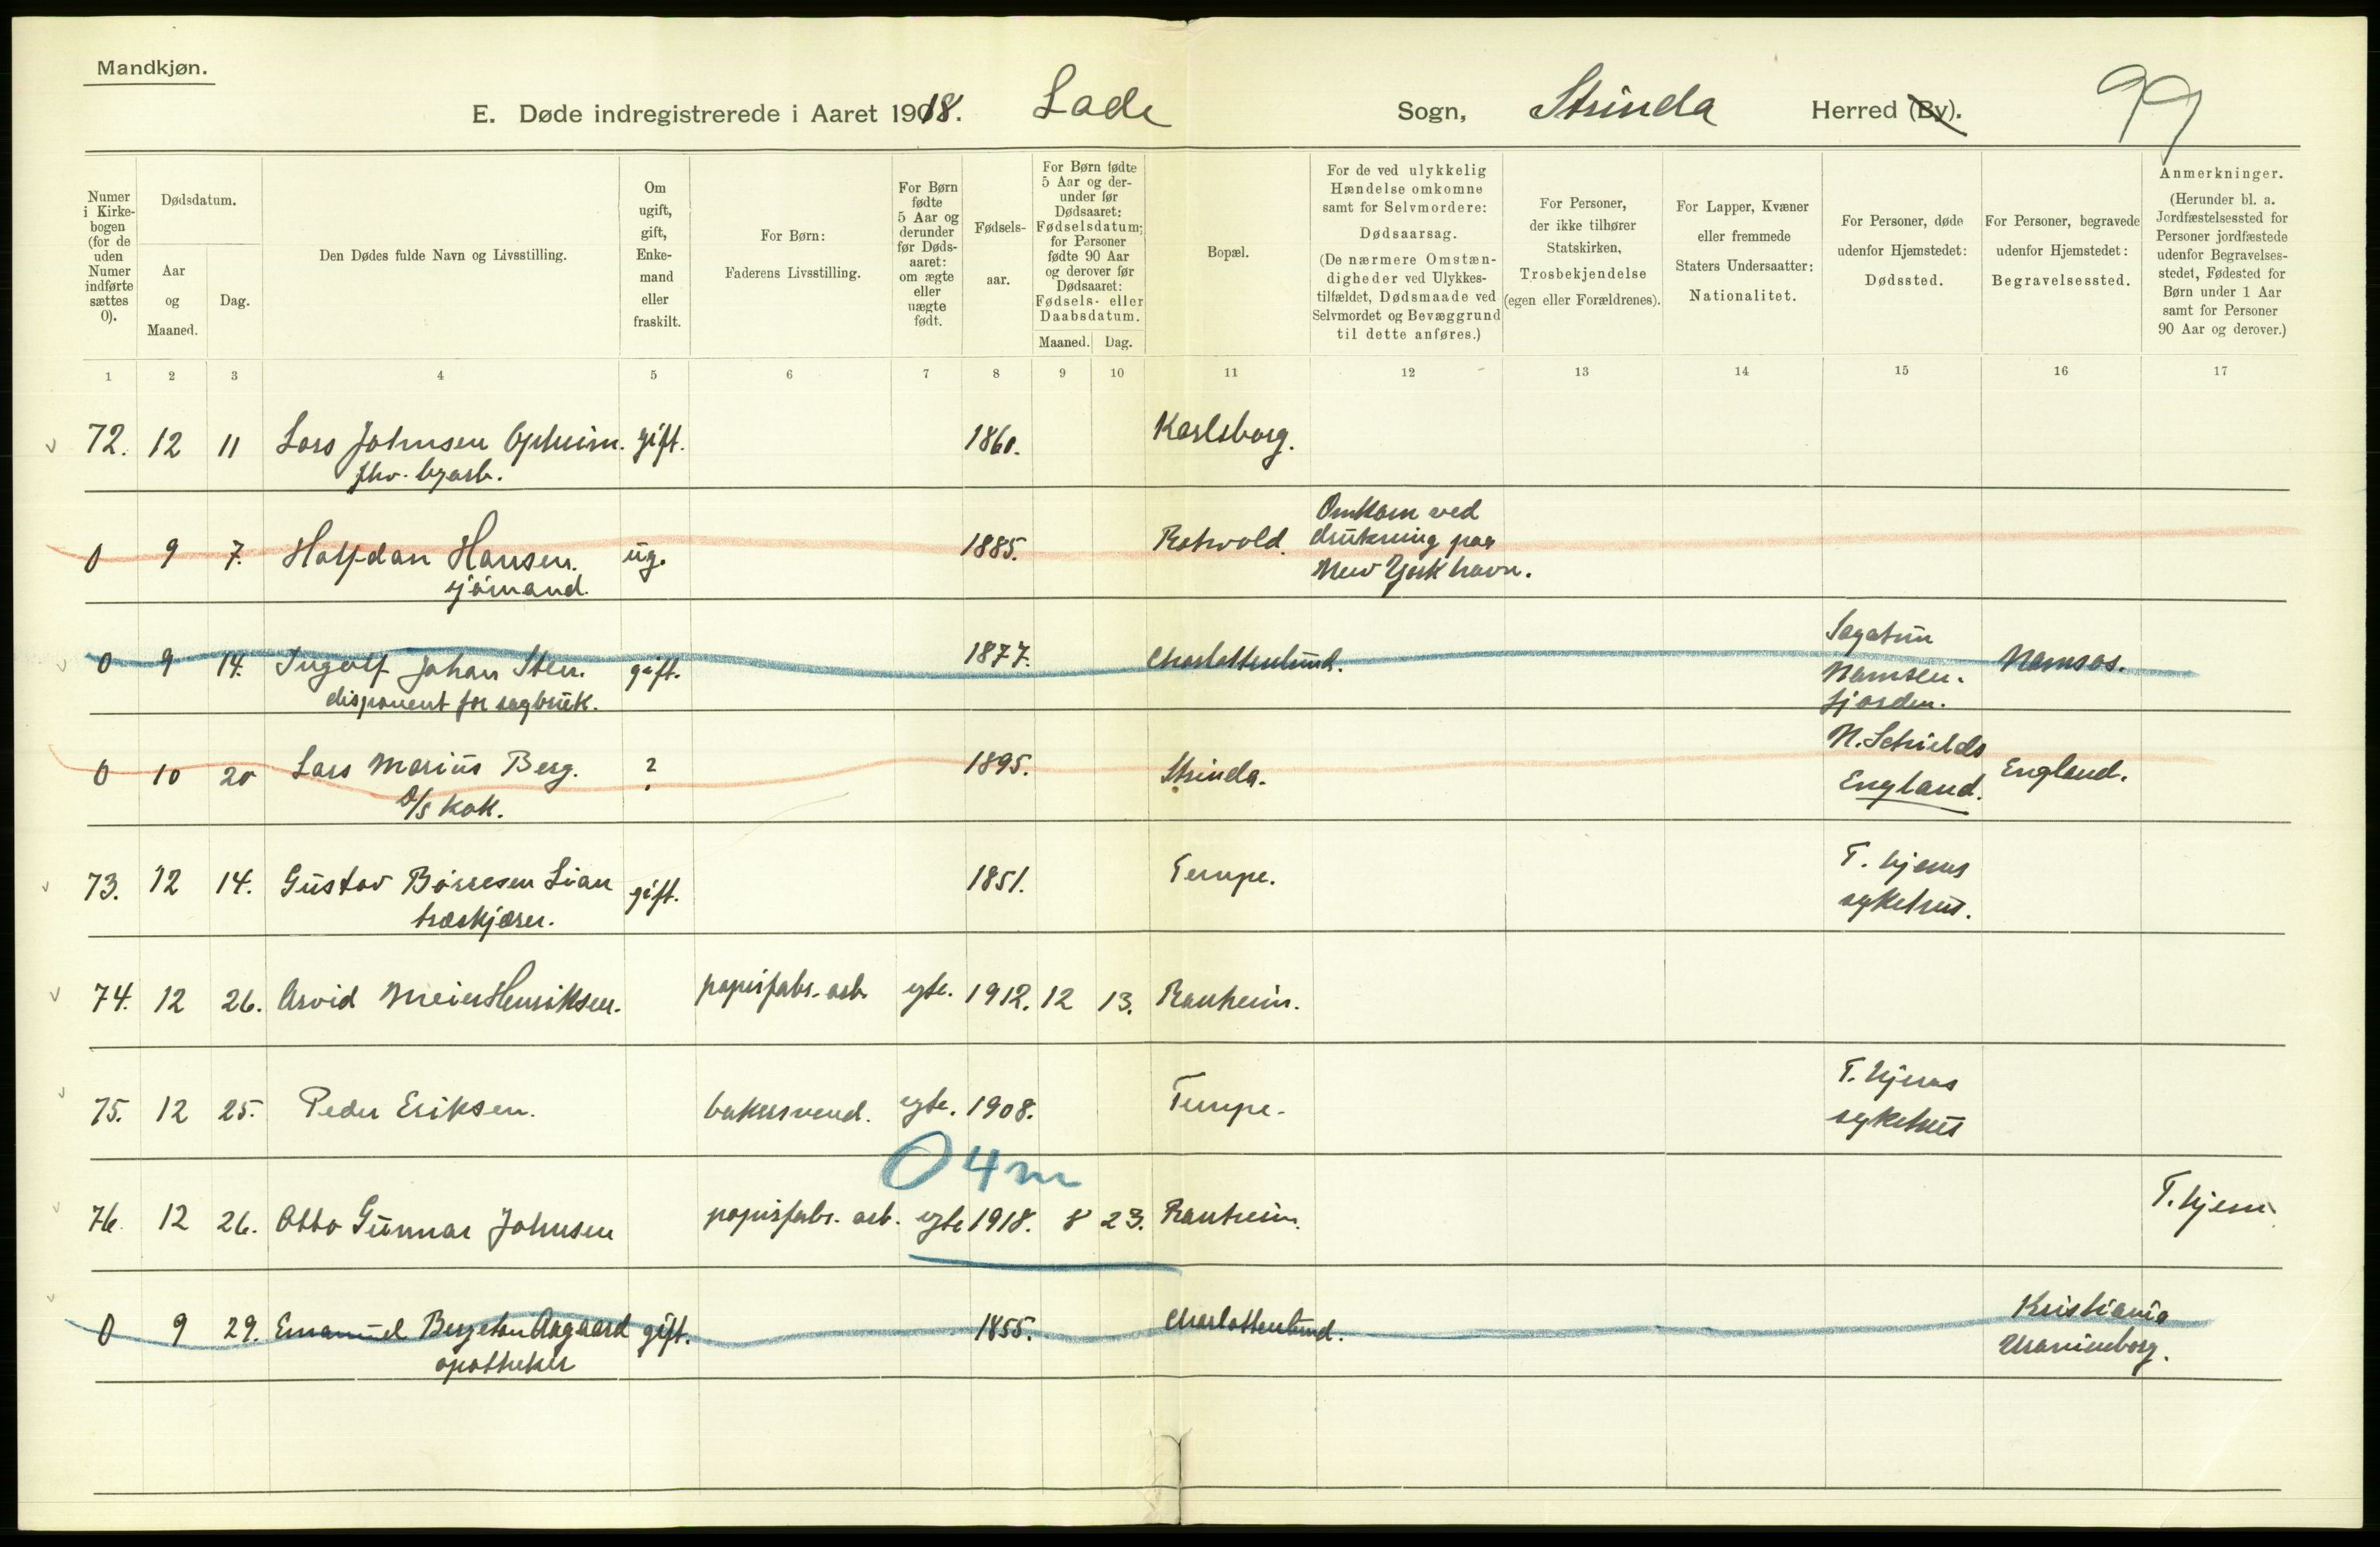 Mandkjøn.
E. Døde indregistrerede i Aaret 1918. Lade Sogn, Strinda Herred (By). 99
Numer i Kirkebogen (for de uden Numer indførte sættes 0).
Dødsdatum.
Aar og Maaned.
Dag.
Den Dødes fulde Navn og Livsstilling.
Om ugift, gift, Enkemand eller fraskilt.
For Børn: Faderens Livsstilling.
For Børn fødte 5 Aar og derunder før Dødsaaret: om ægte eller uægte født.
Fødselsaar.
For Børn fødte 5 Aar og derunder før Dødsaaret: Fødselsdatum; for Personer fødte 90 Aar og derover før Dødsaaret: Fødsels- eller Daabsdatum.
Maaned. Dag.
Bopæl.
For de ved ulykkelig Hændelse omkomne samt for Selvmordere: Dødsaarsag. (De nærmere Omstændigheder ved Ulykkestilfældet, Dødsmaade ved Selvmordet og Bevæggrund til dette anføres.)
For Personer, der ikke tilhører Statskirken, Trosbekjendelse (egen eller Forældrenes).
For Lapper, Kvæner eller fremmede Staters Undersaatter: Nationalitet.
For Personer, døde udenfor Hjemstedet: Dødssted.
For Personer, begravede udenfor Hjemstedet: Begravelsessted.
Anmerkninger. (Herunder bl. a. Jordfæstelsessted for Personer jordfæstede udenfor Begravelsesstedet, Fødested for Børn under 1 Aar samt for Personer 90 Aar og derover.)
1 2 3 4 5 6 7 8 9 10 11 12 13 14 15 16 17
72. 12 11 Lars Johnsen Opheim. gift. 1860. Karlsborg.
fhv. byarb.
0 9 7. Halfdan Hansen. ug. 1885. Rotvold. Omkom ved drukning paa New York havn.
sjømand.
0 9 14. Ingolf Johan Sten. gift. 1877. Charlottenlund. Sagatun Namsenfjorden. Namsos.
disponent for sagbruk.
0 10 20 Lars Marius Berg. ? 1895. Strinda. N. Schields England. England.
D/S kok.
73. 12 14. Gustav Børresen Lian gift. 1851. Tempe. T.hjems sykehus.
træskjærer.
74. 12 26. Arvid Meier Henriksen. papirfabr. arb. egte. 1912. 12 13. Ranheim.
75. 12 25. Peder Eriksen. bakersvend. egte. 1908. Tempe. T.hjems sykehus
0 4 m
76. 12 26. Otto Gunnar Johnsen papirfabr. arb. egte 1918. 8 23. Ranheim. T.hjem.
0 9 29. Emanuel Bergeton Aagaard gift. 1855. Charlottenlund. Kristiania Uranienborg.
apotheker